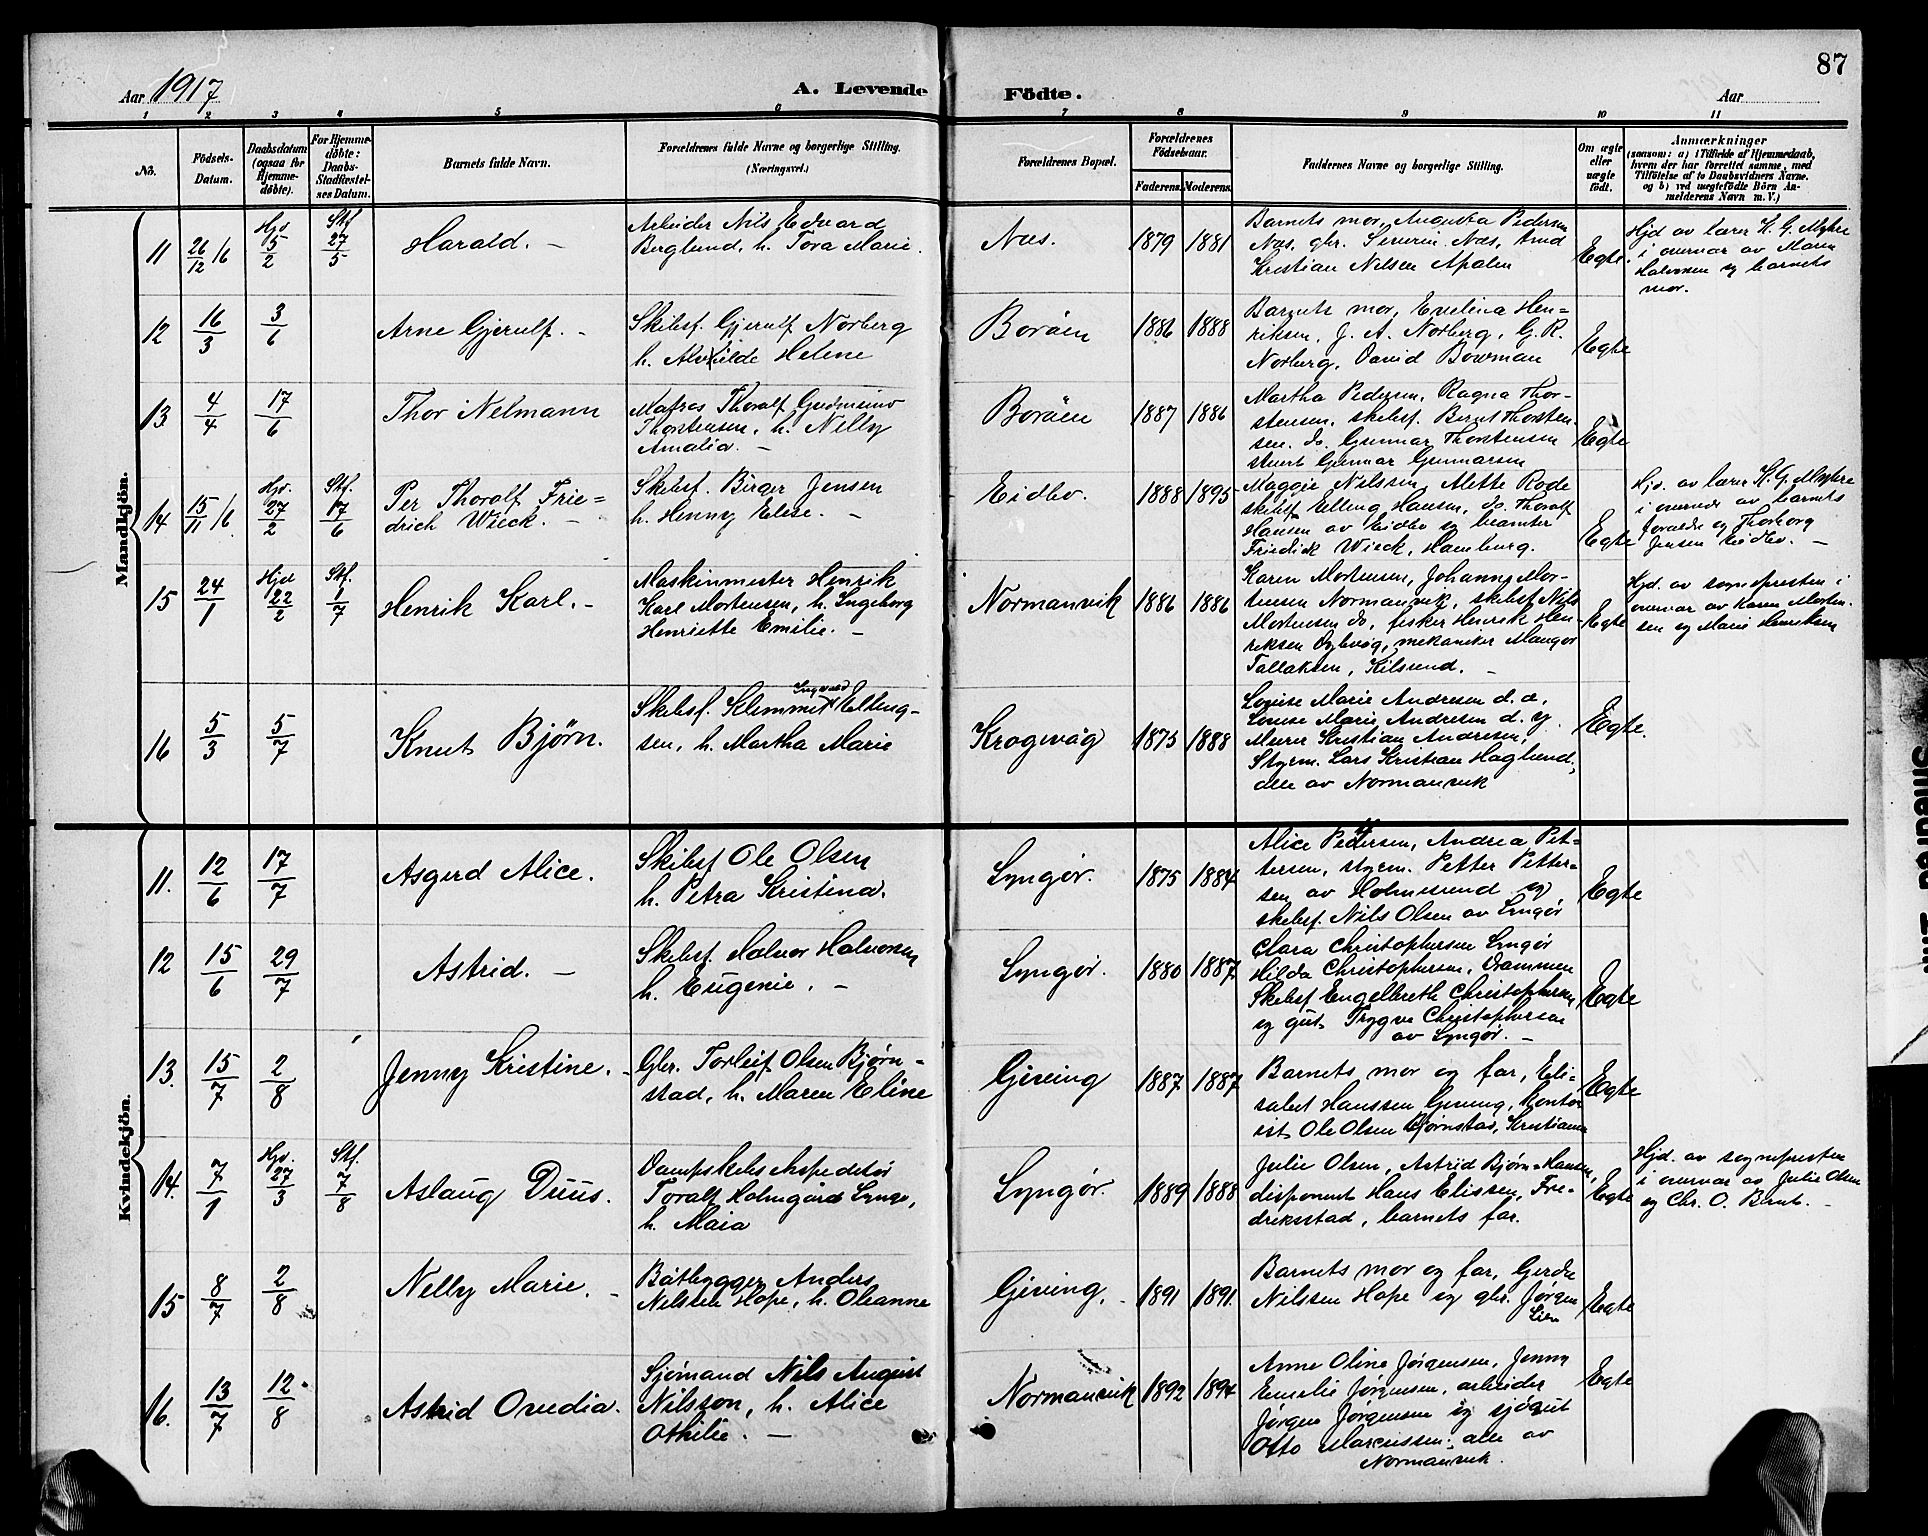 87
Aar 1917
A. Levende
Födte.
Aar
1 2 3 4 5 6 7 8 9 10 11
No.
Födsels-
Datum.
Daabsdatum
(ogsaa for
Hjemme-
döbte).
For Hjemme-
döbte:
Daabs-
Stadfæstel-
ses Datum.
Barnets fulde Navn.
Forældrenes fulde Navne og borgerlige Stilling.
(Næringsvei.)
Forældrenes Bopæl.
Forældrenes
Födselsaar.
Faderens.
Moderens.
Faddernes Navne og borgerlige Stilling.
Om ægte
eller
uægte
födt.
Anmærkninger
(saasom: a) i Tilfælde af Hjemmedaab,
hvem der har forrettet samme, med
Tilföielse af to Daabsvidners Navne,
og b) ved uægtefödte Börn An-
melderens Navn m. V.)
Mandkjön.
11
26/12 16
Hjd
5/2
Stf
27/5
Harald. –
Arbeider Nils Edvard
Berglund, h. Tora Marie.
Næs.
1879
1881
Barnets mor, Augusta Pedersen
Næs, gbr. Severin Næs, Arnd
Kristian Nilsen Apalen
Egte.
Hjd av lærer K. G. Myhre
i overvær av Maren
Halvorsen og barnets
mor.
12
16/3
3/6
Arne Gjerulf. –
Skibsf. Gjerulf Norberg
h. Alvhilde Helene
Borøen
1886
1888
Barnets mor, Evelina Hen=
riksen, J. A. Norberg, G. R.
Norberg, David Bowman
Egte
13
4/4
17/6
Thor Nelmann
Matros Thoralf Gudmund
Thorstensen, h. Nelly
Amalia. –
Borøen
1887
1886
Martha Pedersen, Ragna Thor-
stensen, skibsf. Bernt Thorsten-
sen, do. Gunnar Thorstensen
stuert Gunnar Gunnarsen
Egte
14
15/11 16
Hjd.
27/2
Stf.
17/6
Per Thoralf Frie=
drich Wieck. –
Skibsf. Birger Jensen
h. Henny Elise. –
Eidbo.
1888
1895
Maggie Nilssen, Alette Rode
skibsf Elling Hansen, do. Thoralf
Hansen av Eidbo og beamter
Friedrick Wieck, Hamburg.
Egte
Hjd. av lærer K. G. Myhre
i overvær av barnets
forældre og Thorborg
Jensen Eidbo. –
15
24/1
Hjd
22/2
Stf.
1/7
Henrik Karl. –
Maskinmester Henrik
Karl Mortensen, h. Ingeborg
Henriette Emilie. –
Normanvik
1886
1886
Karen Mortensen, Johanne Mor-
tensen Normanvik, skibsf Nils
Mortensen do, fisker Henrik Hen-
riksen Dybvåg, mekaniker Mangor
Tallaksen, Kilsund. –
Egte
Hjd. av sognepresten i
overvær av Karen Morten-
sen og Marie Henriksen
16
5/3
5/7
Knut Bjørn.
Ingvald
Skibsf. Klemmet Elling-
sen, h. Martha Marie
Krogevåg
1875
1888
Louise Marie Andresen d. æ.
Louise Marie Andresen d. y.
Murer Kristian Andresen,
Styrm. Lars Kristian Haglund,
alle av Normanvik
Egte.
Kvindekjön.
11.
12/6
17/7
Asgerd Alice.
Skibsf Ole Olsen
h. Petra Kristina.
Lyngør.
1875
1884
Alice Pettersen, Andrea Pet=
tersen, styrm. Petter Petter=
sen av Holmesund og
skibsf. Nils Olsen av Lyngør
Egte
12
15/6
29/7
Astrid. –
Skibsf. Halvor Halvorsen
h. Eugenie. –
Lyngør.
1880
1887
Clara Christophersen Lyngør
Hilda Christophersen, Drammen
Skibsf Engelbreth Christophersen,
og gut. Trygve Christophersen
av Lyngør. –
Egte
13.
15/7
2/8
Jenny Kristine. –
Gbr. Torleif Olsen Bjørn-
stad, h. Maren Eline
Gjeving
1887
1887
Barnets mor og far, Eli-
sabet Hanssen Gjeving, kontor
ist Ole Olsen Bjørnstad, Kristiania
Egte
14.
7/1
Hjd.
27/3
Stf.
7/8
Aslaug Duus.
Dampskibsekspeditør
Toralf Holmgård Lynge,
h. Maia
Lyngør.
1889
1888
Julie Olsen, Astrid Bjørn=Hansen,
disponent Hans Elissen, Fre-
driksstad, barnets far.
Egte
Hjd. av sognepresten
i overvær av Julie Olsen
og Chr. O. Bernt. –
15
8/7
2/8
Nelly Marie. –
Båtbygger Anders
Nilssen Hope, h. Oleanne
Gjeving. –
1891
1891.
Barnets mor og far, Gerda
Nilssen Hope og gbr. Jørgen
Lien
Egte
16.
13/7
12/8
Astrid Ovedia.
Sjømand Nils August
Nilsson, h. Alice
Othilie. –
Normanvik
1892
1894
Anne Oline Jørgensen, Jenny
Emilie Jørgensen, arbeider
Jørgen Jørgensen og sjøgut
Otto Marcussen, alle av
Normanvik.
Egte